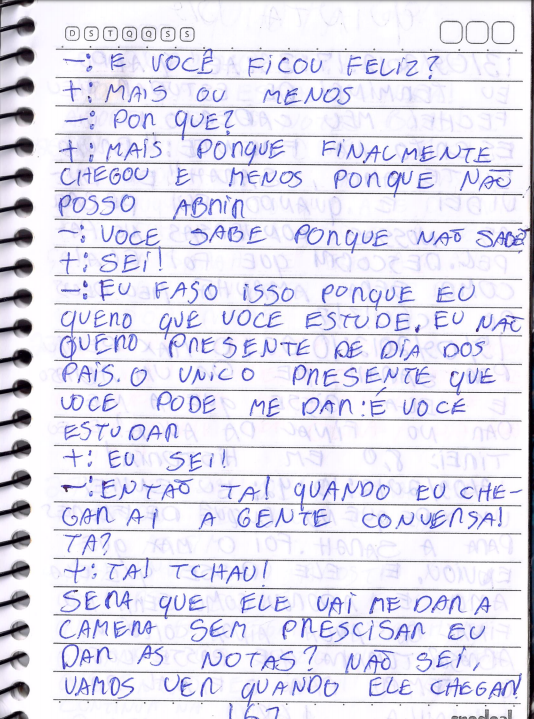 D S T Q Q S S
–: E VOCÊ FICOU FELIZ?
+: MAIS OU MENOS
–: POR QUE?
+: MAIS PORQUE FINALMENTE
CHEGOU E MENOS PORQUE NÃO
POSSO ABRIR
–: VOCE SABE PORQUE NÃO SABE?
+: SEI!
–: EU FASO ISSO PORQUE EU
QUERO QUE VOCE ESTUDE. EU NÃO
QUERO PRESENTE DE DIA DOS
PAIS. O UNICO PRESENTE QUE
VOCE PODE ME DAR: É VOCÊ
ESTUDAR
+: EU SEI!
–: ENTÃO TA! QUANDO EU CHE-
GAR AI A GENTE CONVERSA!
TA?
+: TA! TCHAU!
SERA QUE ELE VAI ME DAR A
CAMERA SEM PRESCISAR EU
DAR AS NOTAS? NÃO SEI,
VAMOS VER QUANDO ELE CHEGAR!